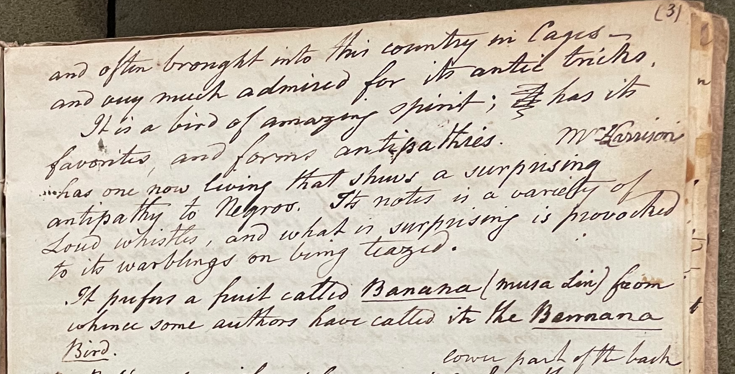 (3)
and often brought into this country in Cages –
and very much admired for its antic tricks.
It is a bird of amazing spirit; has its
favorites, and forms antipathies. Mr Harrison
has one now living that shews a surprising
antipathy to Negros. Its notes is a variety of
Loud whistles, and what is surprising is provocked
to its warblings on being teazed.
It prefers a fruit called Banana (musa Lin) from
whence some authors have called it the Bannana
Bird.
lower part of the back